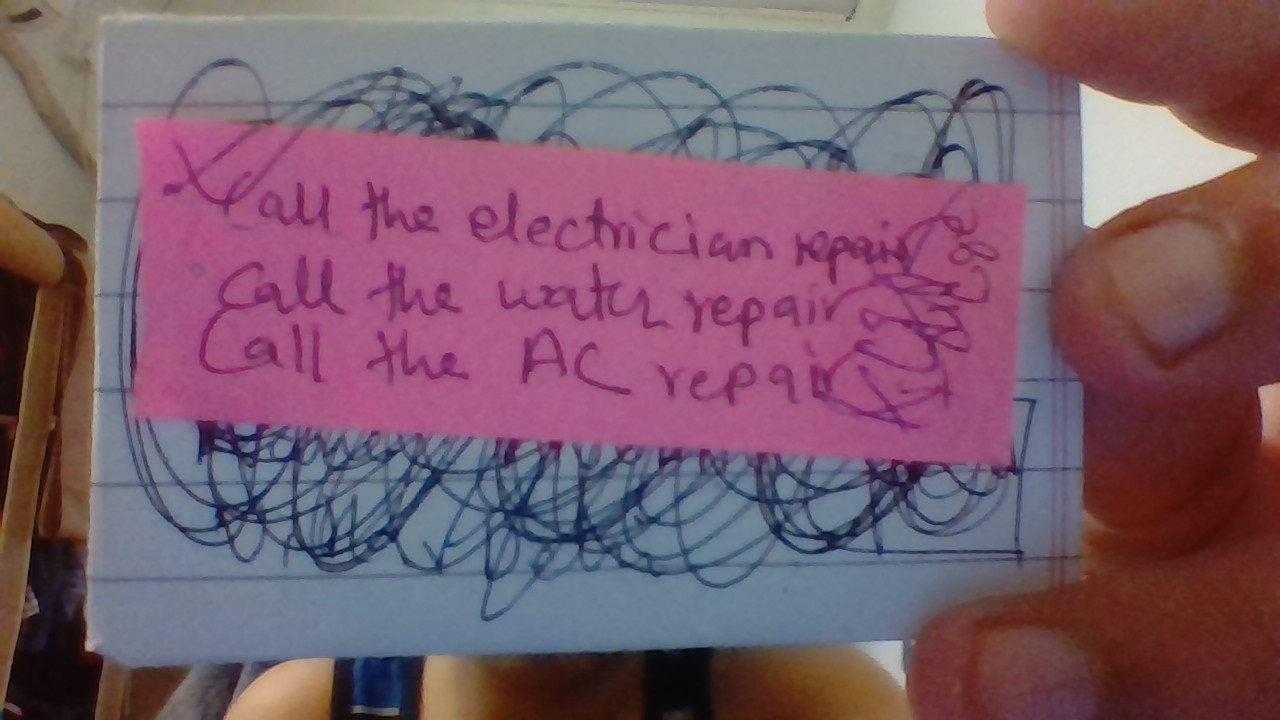 Call the electrician repair
Call the water repair
Call the AC repair